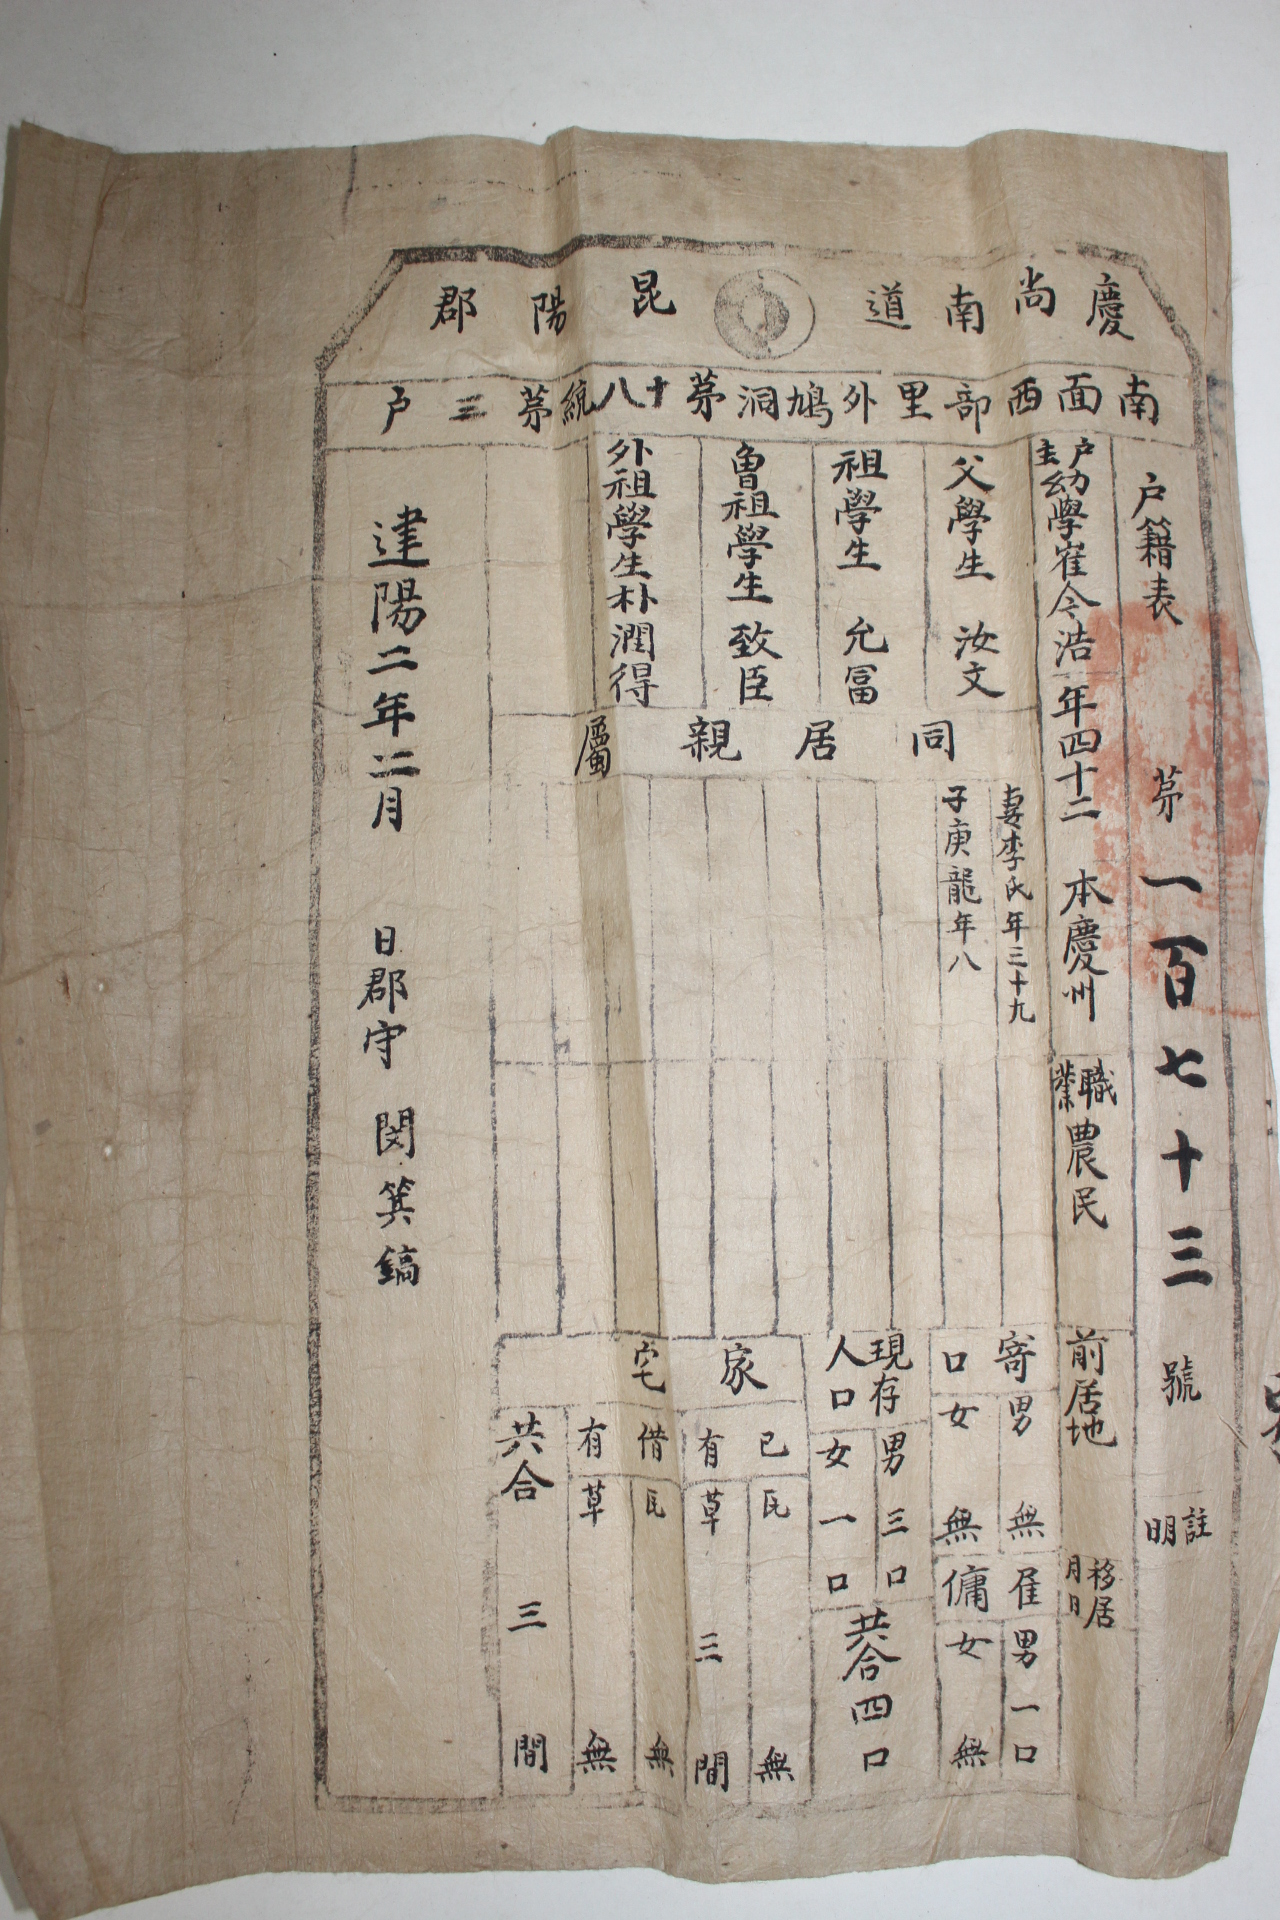 慶尚南道昆陽郡
南面西部里外鳩洞第十八統第三戶
戶籍表 第一百七十三號 註明
戶主幼學崔令浩 年四十二 本慶州 職業農民 前居地 移居月日
父學生 汝文
祖學生 允冨
曾祖學生 致臣
外祖學生朴潤得
同居親屬
妻李氏年三十九
子庚龍年八
寄口 男無 女無
雇傭 男一口 女無
現存人口 男三口 女一口 共合四口
家宅
己有 瓦無 草三間
借有 瓦無 草無
共合三間
建陽二年二月 日郡守 閔箕鎬